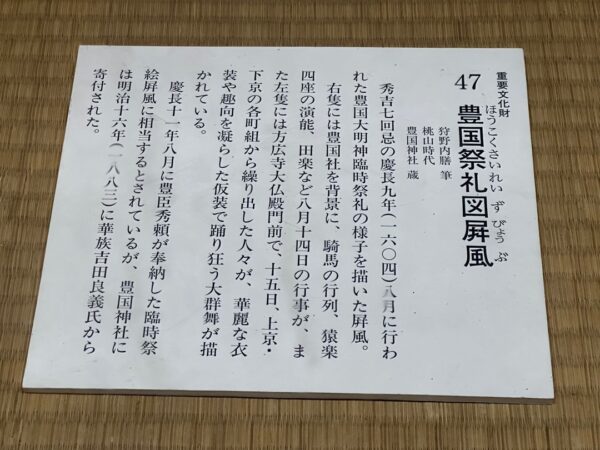 重要文化財
47 豊国祭礼図屏風
ほうこくさいれい ず びょう ぶ
狩野内膳 筆
桃山時代
豊国神社 蔵
秀吉七回忌の慶長九年(一六〇四)八月に行わ
れた豊国大明神臨時祭礼の様子を描いた屏風。
右隻には豊国社を背景に、騎馬の行列、猿楽
四座の演能、田楽など八月十四日の行事が、ま
た左隻には方広寺大仏殿門前で、十五日、上京・
下京の各町組から繰り出した人々が、華麗な衣
装や趣向を凝らした仮装で踊り狂う大群舞が描
かれている。
慶長十一年八月に豊臣秀頼が奉納した臨時祭
絵屏風に相当するとされているが、豊国神社に
は明治十六年(一八八三)に華族吉田良義氏から
寄付された。